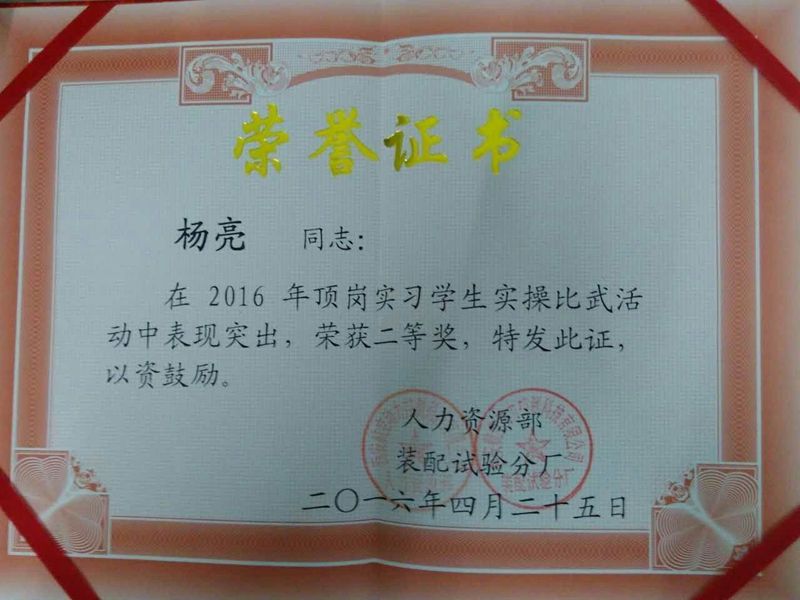 荣誉证书
杨亮 同志：
在 2016 年顶岗实习学生实操比武活
动中表现突出，荣获二等奖，特发此证，
以资鼓励。
人力资源部
装配试验分厂
二〇一六年四月二十五日